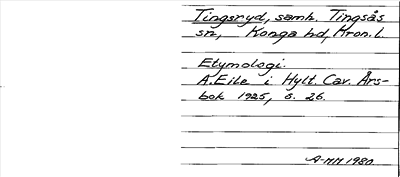 Tingsryd, samh. Tingsås
sn, Konga hd, Kron. l.
Etymologi.
A. Eile i Hylt. Cav. Års-
bok 1925, s. 26.
A-MH 1980